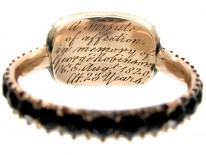 A Tribute
of affection
in memory of
George Robinson
Augst 1820
23 Years